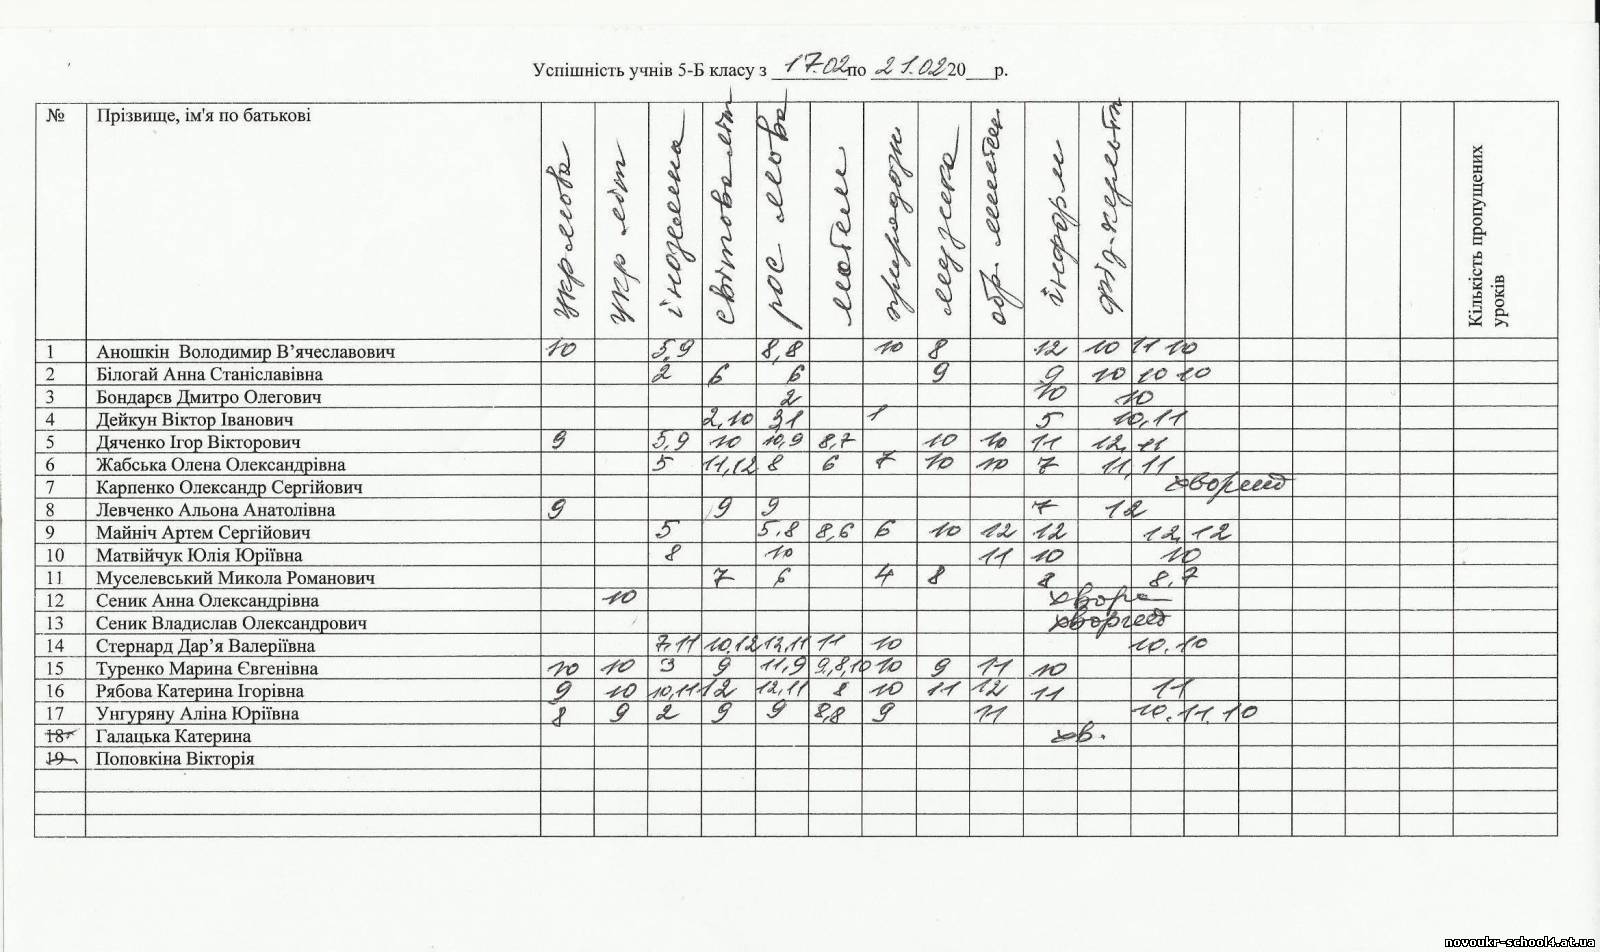 Успішність учнів 5-Б класу з 17.02 по 21.02 20___р.
№ Прізвище, ім'я по батькові укр мова укр літ іноземна світова літ рос мова матем природозн музика обр. мистец інформ фіз-культ Кількість пропущених уроків
1 Аношкін Володимир В’ячеславович 10 5,9 8,8 10 8 12 10 11 10
2 Білогай Анна Станіславівна 2 6 6 9 9 10 10 10
3 Бондарєв Дмитро Олегович 2 10 10
4 Дейкун Віктор Іванович 2,10 3,1 1 5 10,11
5 Дяченко Ігор Вікторович 9 5,9 10 10,9 8,7 10 10 11 12,11
6 Жабська Олена Олександрівна 5 11,12 8 6 7 10 10 7 11,11
7 Карпенко Олександр Сергійович хворий
8 Левченко Альона Анатолівна 9 9 9 7 12
9 Майніч Артем Сергійович 5 5,8 8,6 6 10 12 12 12,12
10 Матвійчук Юлія Юріївна 8 10 11 10 10
11 Муселевський Микола Романович 7 6 4 8 8 8,7
12 Сеник Анна Олександрівна 10 хвора
13 Сеник Владислав Олександрович хворий
14 Стернард Дар’я Валеріївна 7,11 10,12 12,11 11 10 10,10
15 Туренко Марина Євгенівна 10 10 3 9 11,9 9,8,10 10 9 11 10
16 Рябова Катерина Ігорівна 9 10 10,11 12 12,11 8 10 11 12 11 11
17 Унгуряну Аліна Юріївна 8 9 2 9 9 8,8 9 11 10.11.10
18 Галацька Катерина хв.
19 Поповкіна Вікторія
novoukr-school4.at.ua